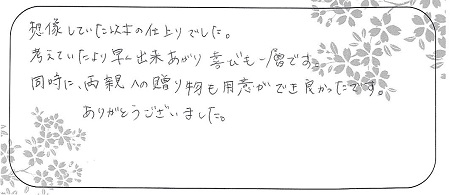 想像していた以上の仕上りでした。
考えていたより早く出来あがり喜びも一層です。
同時に、両親への贈り物も用意ができ良かったです。
ありがとうございました。